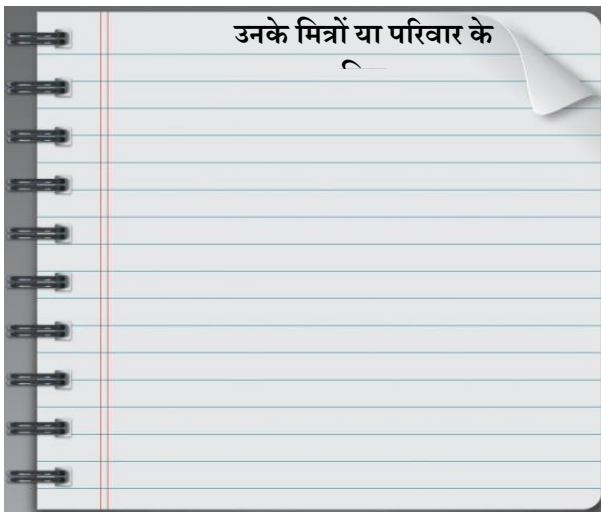 उनके मित्रों या परिवार के